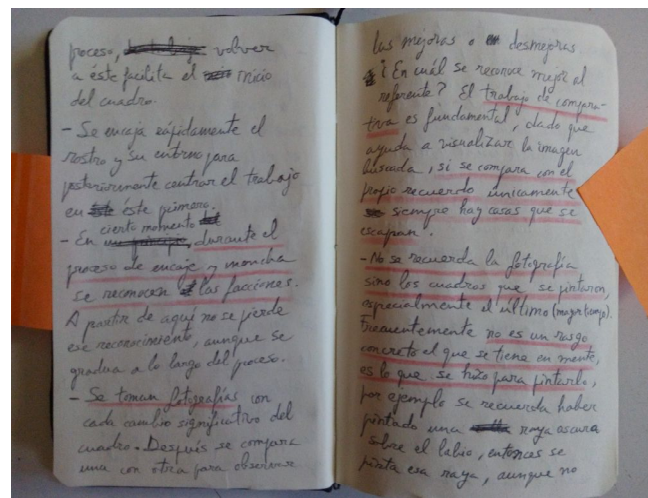 proceso, volver
a éste facilita el inicio
del cuadro.
- Se encaja rápidamente el
rostro y su entorno para
posteriormente centrar el trabajo
en éste primero.
- En cierto momento, durante el
proceso de encaje y mancha
se reconocen las facciones.
A partir de aquí no se pierde
ese reconocimiento, aunque se
gradua a lo largo del proceso.
- Se toman fotografías con
cada cambio significativo del
cuadro. Después se compara
una con otra para observar
las mejoras o desmejoras
¿En cuál se reconoce mejor al
referente? El trabajo de compara-
tiva es fundamental, dado que
ayuda a visualizar la imagen
buscada, si se compara con el
propio recuerdo únicamente
siempre hay cosas que se
escapan.
- No se recuerda la fotografía
sino los cuadros que se pintaron,
especialmente el último (mayor tiempo).
Frecuentemente no es un rasgo
concreto el que se tiene en mente,
es lo que se hizo para pintarlo,
por ejemplo se recuerda haber
pintado una raya oscura
sobre el labio, entonces se
pinta esa raya, aunque no